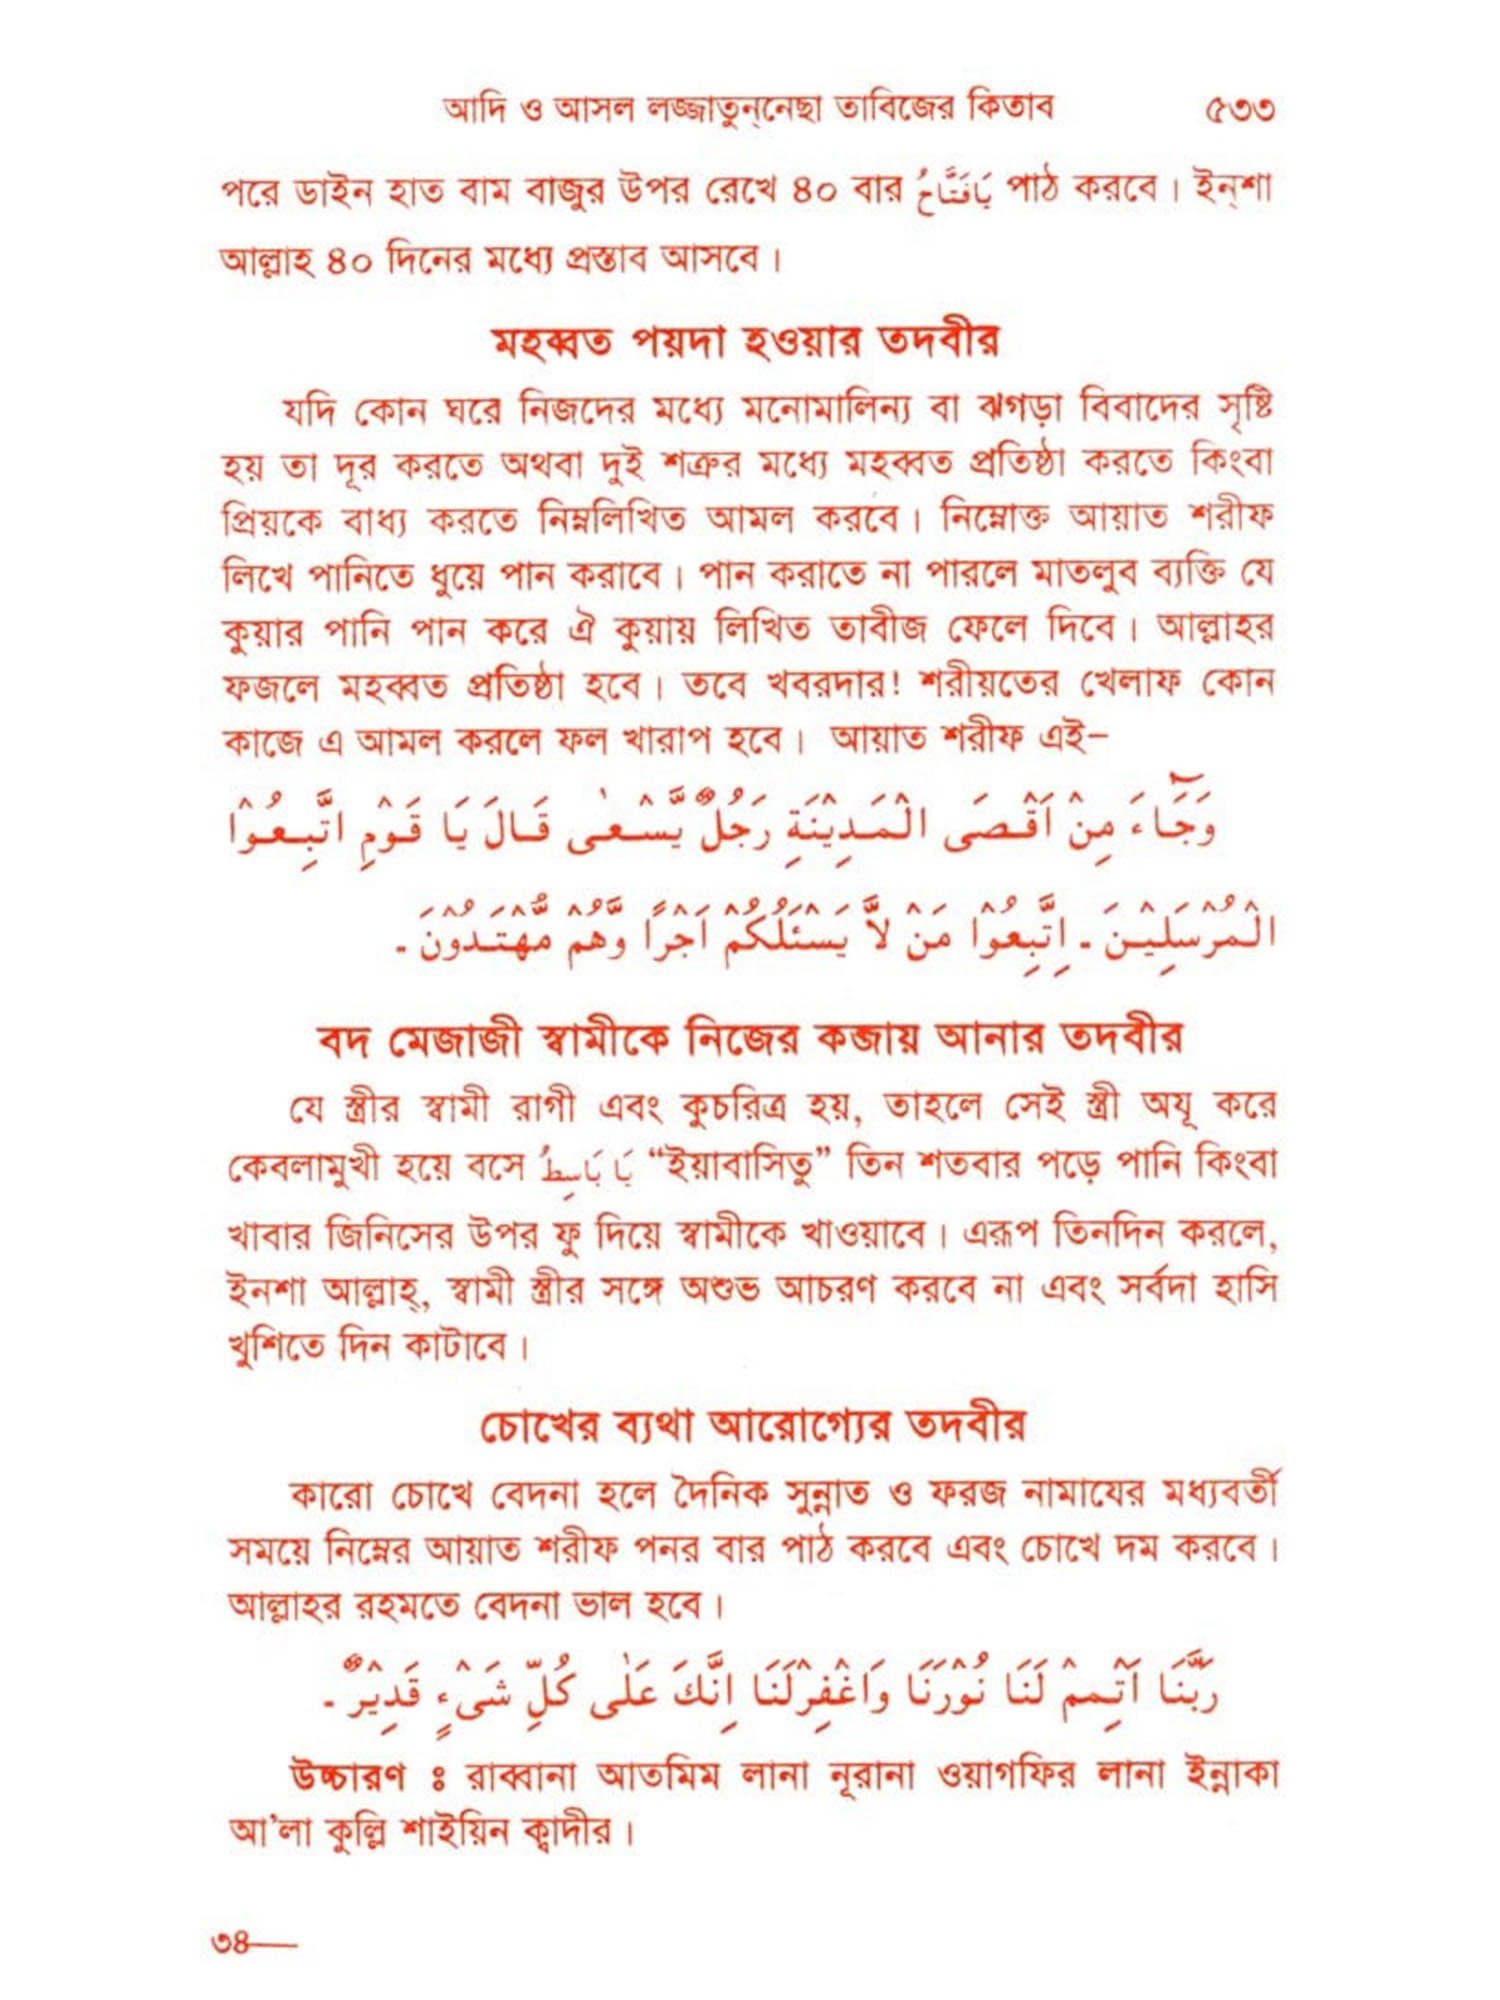 আদি ও আসল লজ্জাতুন্‌নেছা তাবিজের কিতাব ৫৩৩
পরে ডাইন হাত বাম বাজুর উপর রেখে ৪০ বার يَافَتَّاحُ পাঠ করবে। ইন্‌শা
আল্লাহ ৪০ দিনের মধ্যে প্রস্তাব আসবে।
মহব্বত পয়দা হওয়ার তদবীর
যদি কোন ঘরে নিজদের মধ্যে মনোমালিন্য বা ঝগড়া বিবাদের সৃষ্টি
হয় তা দূর করতে অথবা দুই শত্রুর মধ্যে মহব্বত প্রতিষ্ঠা করতে কিংবা
প্রিয়কে বাধ্য করতে নিম্নলিখিত আমল করবে। নিম্নোক্ত আয়াত শরীফ
লিখে পানিতে ধুয়ে পান করাবে। পান করাতে না পারলে মাতলুব ব্যক্তি যে
কুয়ার পানি পান করে ঐ কুয়ায় লিখিত তাবীজ ফেলে দিবে। আল্লাহর
ফজলে মহব্বত প্রতিষ্ঠা হবে। তবে খবরদার! শরীয়তের খেলাফ কোন
কাজে এ আমল করলে ফল খারাপ হবে। আয়াত শরীফ এই–
وَجَآءَ مِنْ اَقْصَى الْمَدِيْنَةِ رَجُلٌ يَّسْعٰى قَالَ يَا قَوْمِ اتَّبِعُوْا
الْمُرْسَلِيْنَ ـ اِتَّبِعُوْا مَنْ لاَّ يَسْئَلُكُمْ اَجْرًا وَّهُمْ مُّهْتَدُوْنَ ـ
বদ মেজাজী স্বামীকে নিজের কব্জায় আনার তদবীর
যে স্ত্রীর স্বামী রাগী এবং কুচরিত্র হয়, তাহলে সেই স্ত্রী অযূ করে
কেবলামুখী হয়ে বসে يَا بَاسِطُ “ইয়াবাসিতু” তিন শতবার পড়ে পানি কিংবা
খাবার জিনিসের উপর ফু দিয়ে স্বামীকে খাওয়াবে। এরূপ তিনদিন করলে,
ইনশা আল্লাহ্, স্বামী স্ত্রীর সঙ্গে অশুভ আচরণ করবে না এবং সর্বদা হাসি
খুশিতে দিন কাটাবে।
চোখের ব্যথা আরোগ্যের তদবীর
কারো চোখে বেদনা হলে দৈনিক সুন্নাত ও ফরজ নামাযের মধ্যবর্তী
সময়ে নিম্নের আয়াত শরীফ পনর বার পাঠ করবে এবং চোখে দম করবে।
আল্লাহর রহমতে বেদনা ভাল হবে।
رَبَّنَا اَتْمِمْ لَنَا نُوْرَنَا وَاغْفِرْلَنَا اِنَّكَ عَلٰى كُلِّ شَىْءٍ قَدِيْرٌ ـ
উচ্চারণ ঃ রাব্বানা আতমিম লানা নূরানা ওয়াগফির লানা ইন্নাকা
আ’লা কুল্লি শাইয়িন ক্বাদীর।
৩৪—